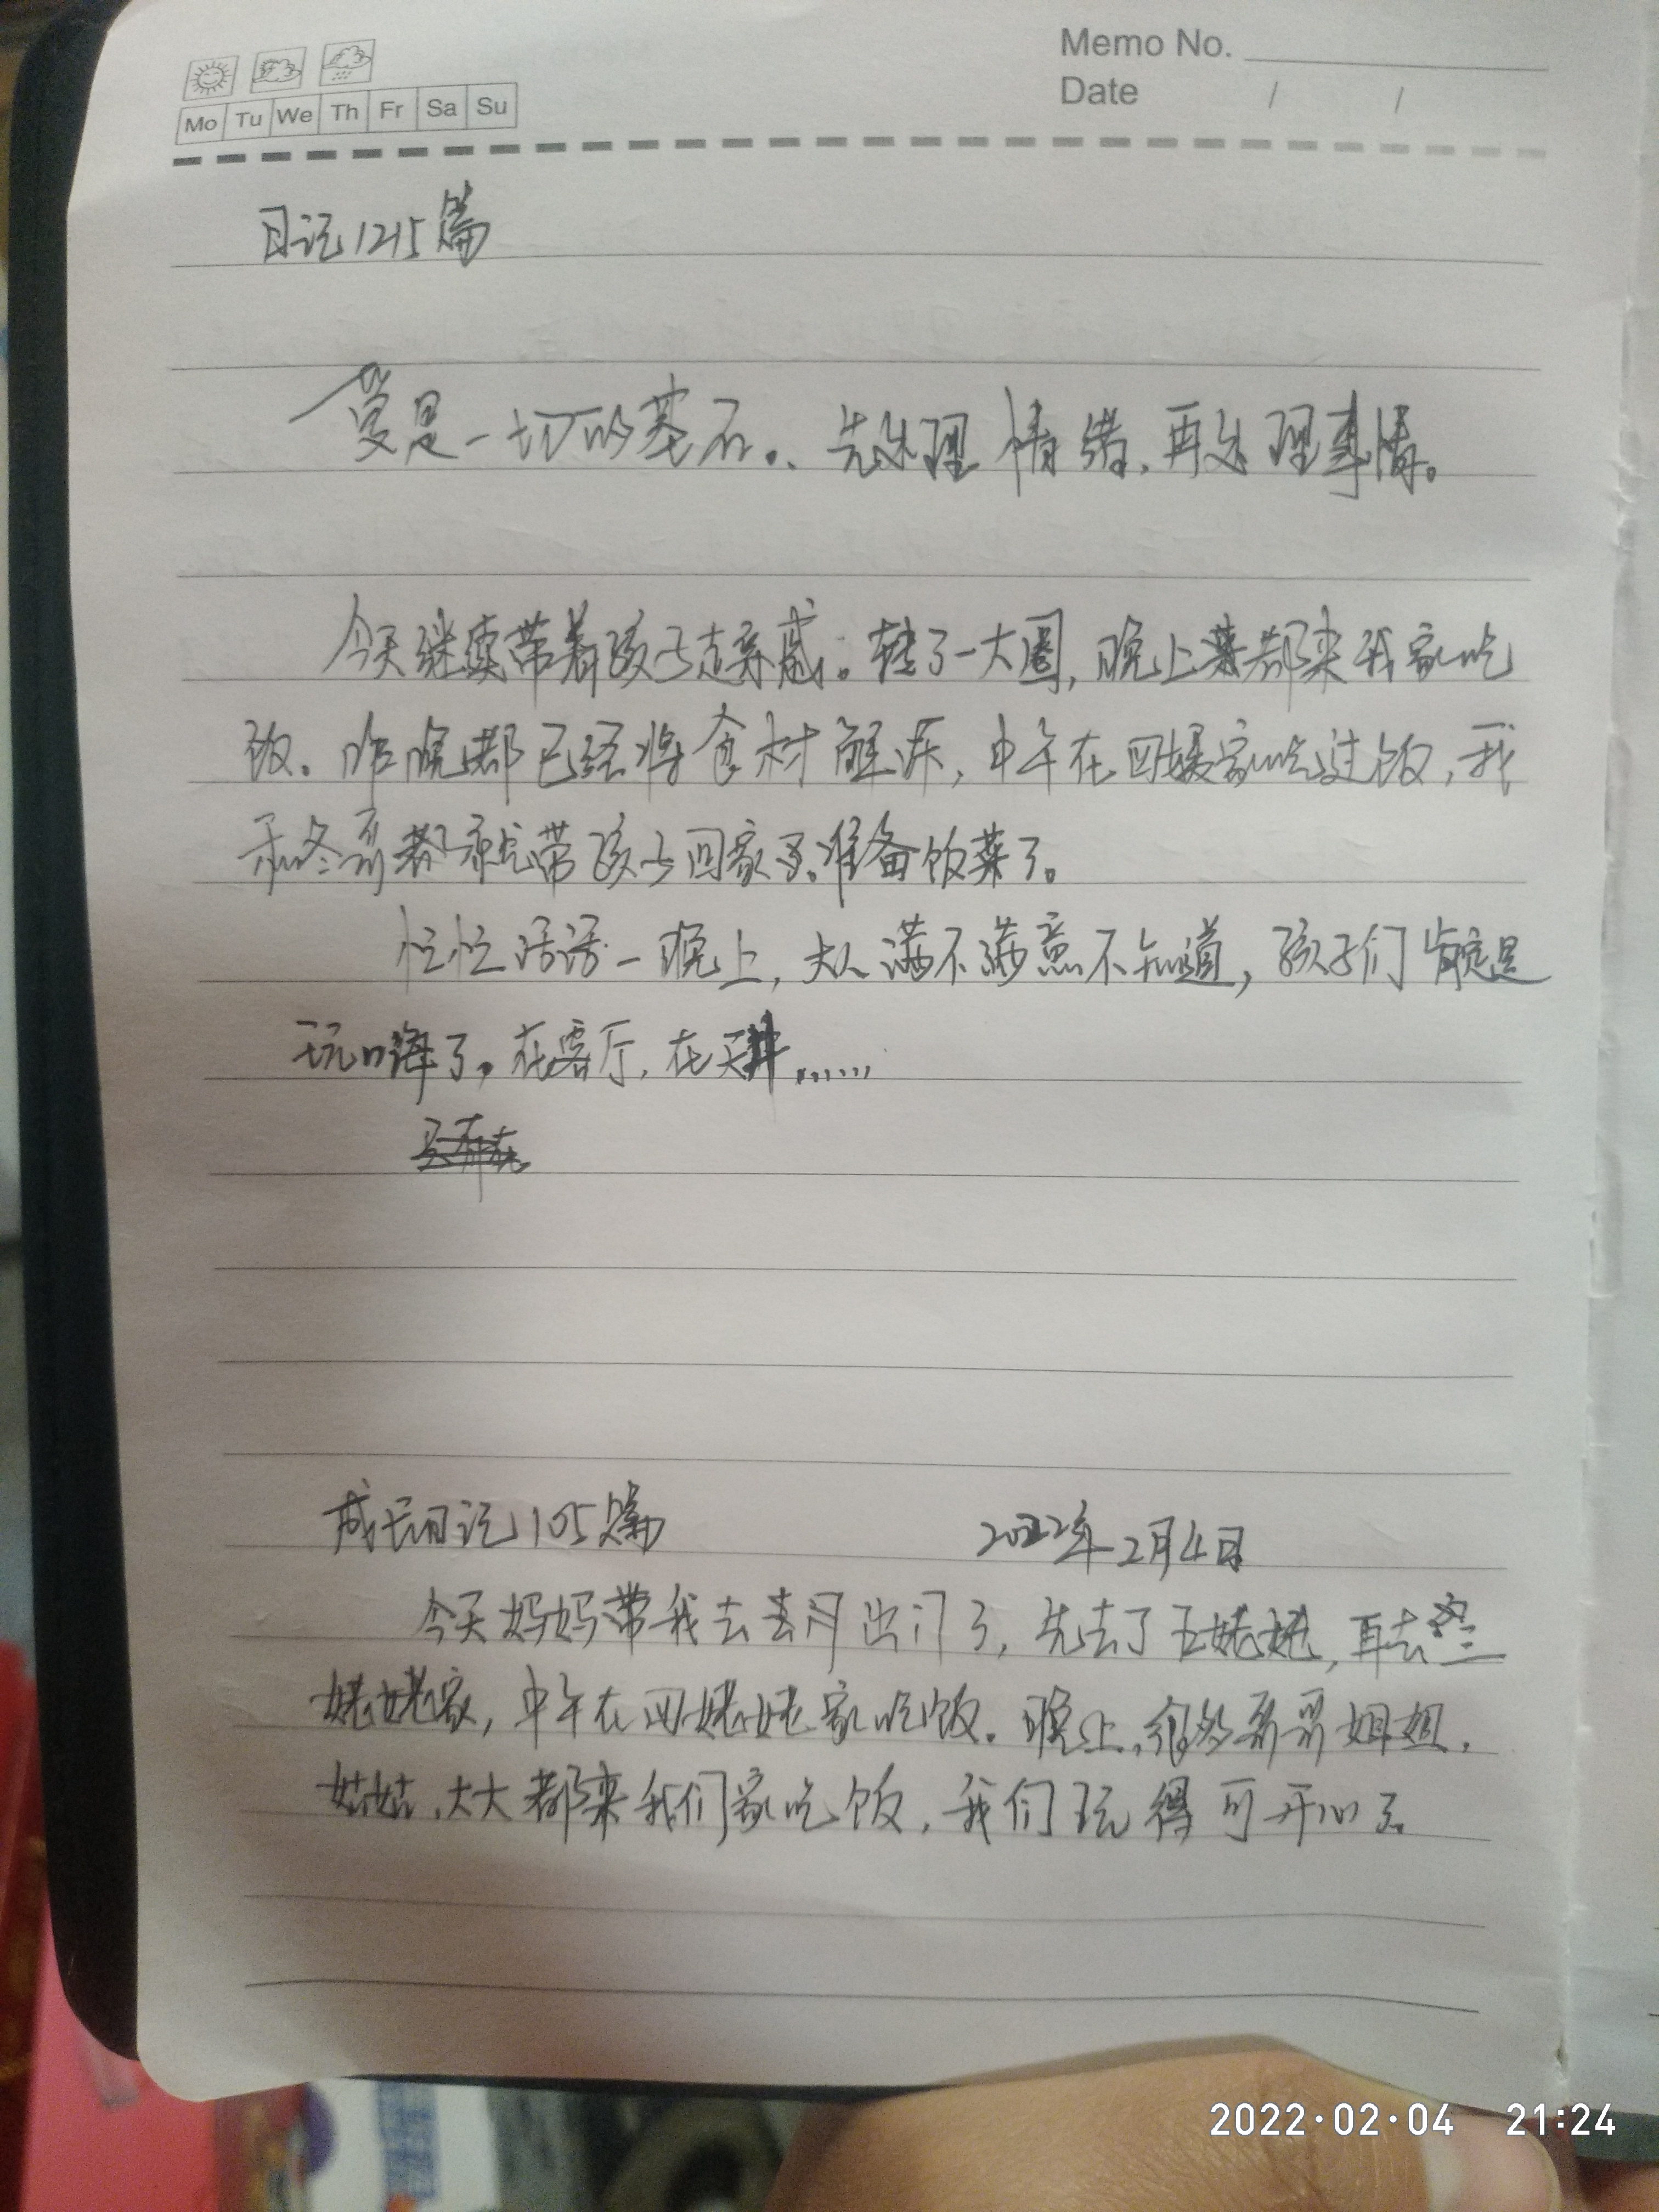 Memo No.
Mo Tu We Th Fr Sa Su
Date / /
日记1215篇
爱是一切的基石。、先处理情绪,再处理事情。
今天继续带着孩子走亲戚。转了一大圈,晚上来都来我家吃
饭。昨晚都已经将食材解冻,中午在四嫂家吃过饭,我
和冬哥都就带孩子回家了。准备饭菜了。
忙忙活活一晚上,大人满不满意不知道,孩子们肯定是
玩嗨了。在客厅,在天井……
成长日记105篇 2022年2月4日
今天妈妈带我去出门了,先去了五姥姥,再去三
姥姥家,中午在四姥姥家吃饭。晚上,很多哥哥姐姐,
姑姑、大大都来我们家吃饭,我们玩得可开心了。
2022·02·04 21:24